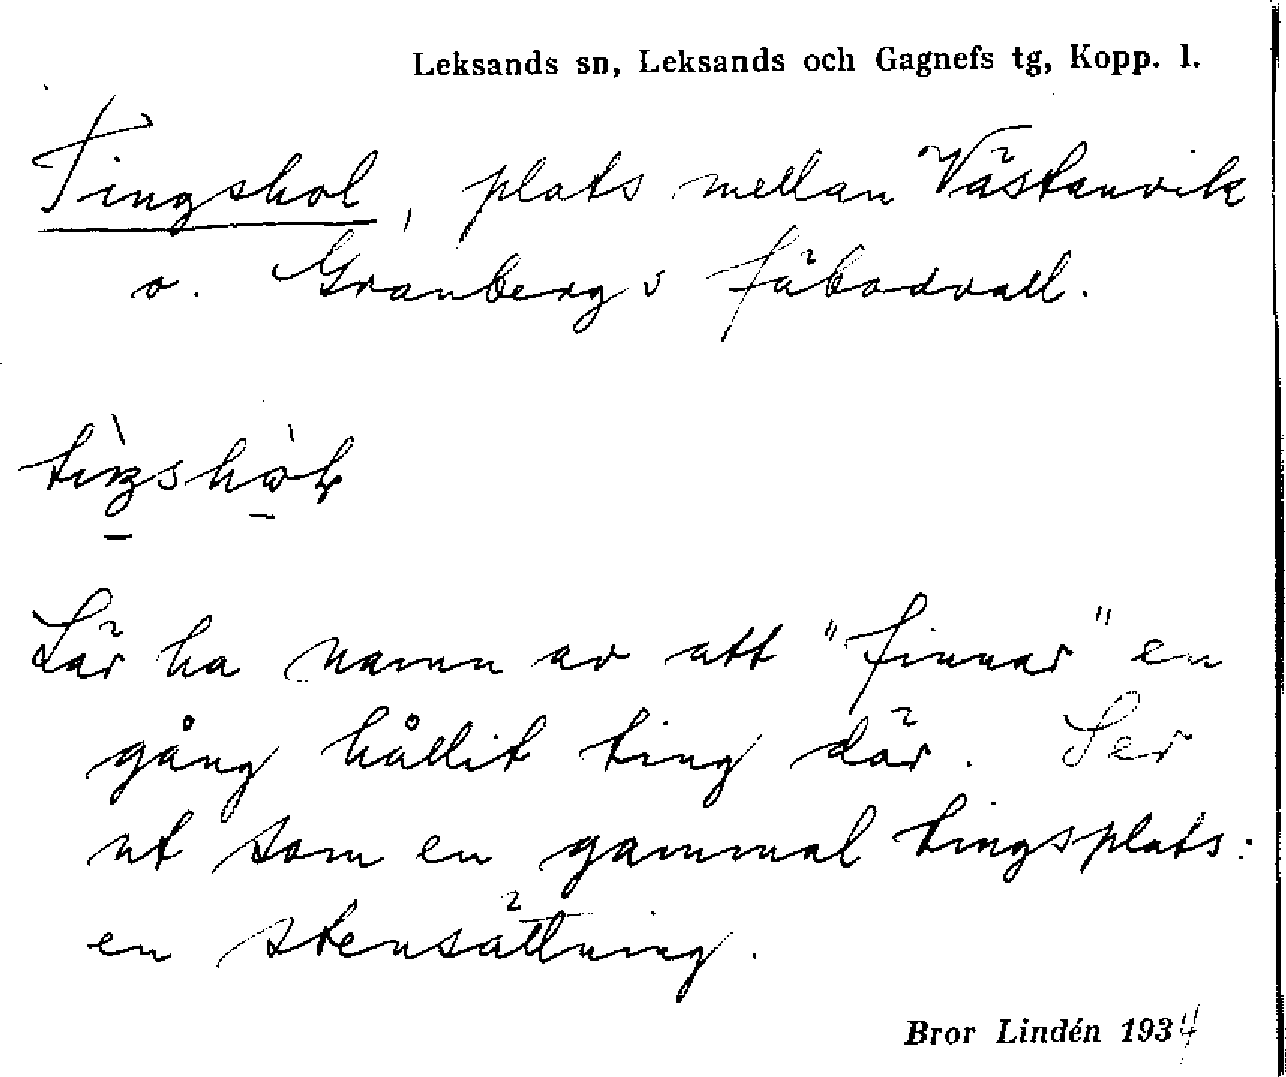 Leksands sn, Leksands och Gagnefs tg, Kopp. l.
Tingshol, plats mellan Västanvik
o. Granbergs fäbodvall.
Lär ha namn av att "finnar" en
gång hållit ting där. Ser
ut som en gammal tingsplats:
en stensättning.
Bror Lindén 1934